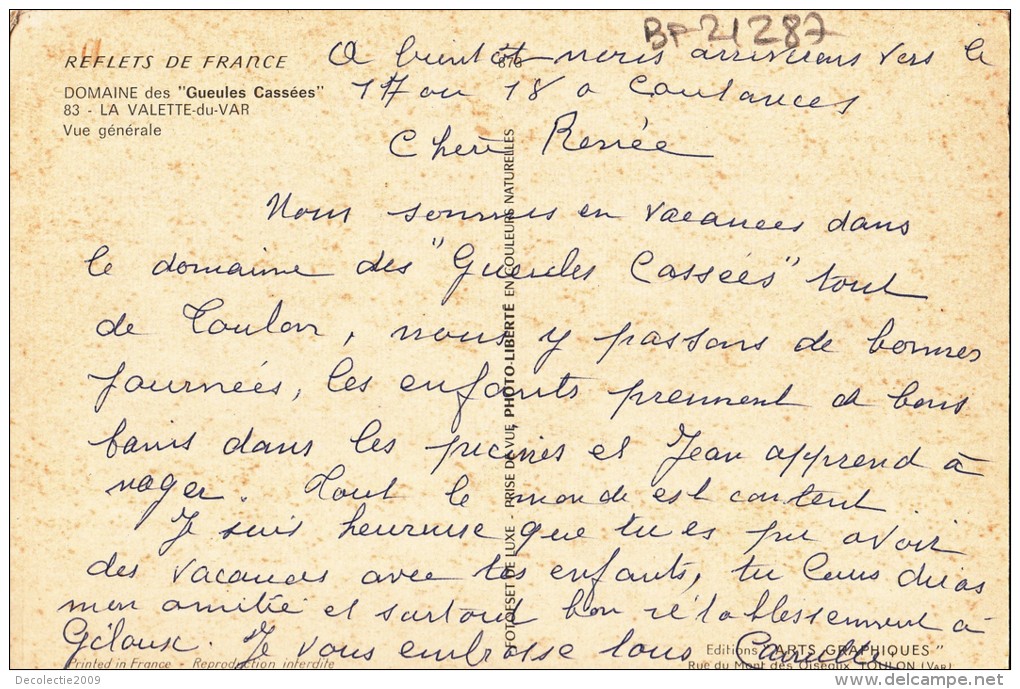 BP 21287
REFLETS DE FRANCE
DOMAINE des "Gueules Cassées"
83 - LA VALETTE-du-VAR
Vue générale
A bientôt nous arriverons vers le
17 ou 18 a Coutances
Chere Renée
Nous sommes en vacances dans
le domaine des "Gueules Cassées" tout
de Toulon, nous y passons de bonnes
journées, les enfants prennent de bons
bains dans les piscines et Jean apprend à
nager. Tout le monde est content.
Je suis heureuse que tu es pu avoir
des vacances avec tes enfants, tu leur diras
mon amitié et surtout bon rétablissement à
Je vous embrasse tous Camille
FOTOFSET DE LUXE - PRISE DE VUE PHOTO-LIBERTÉ EN COULEURS NATURELLES
Printed in France - Reproduction interdite
Editions "ARTS GRAPHIQUES"
Rue du Mont des Oiseaux TOULON (VAR)
Decolectie2009
www.delcampe.net